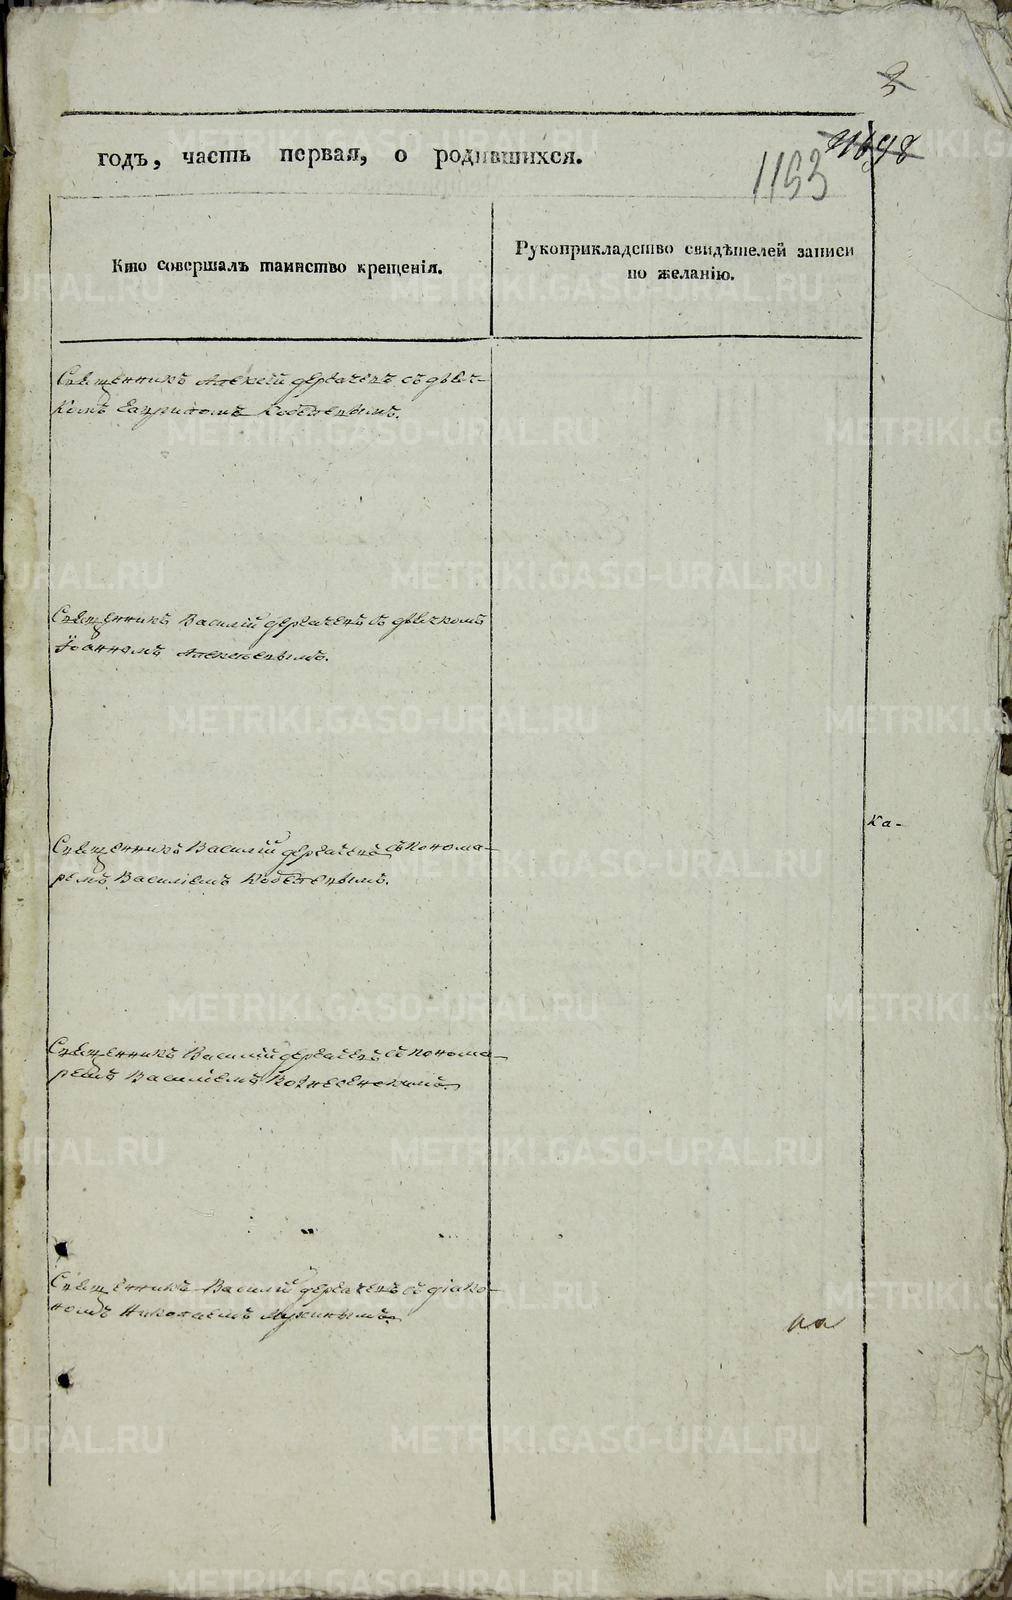 3
11698
1193
годъ, часть первая, о родившихся.
Кто совершалъ таинство крещенія.
Рукоприкладство свидѣтелей записи
по желанію.
Священникъ Алексій Дергачевъ съ дьяч-
комъ Гавриломъ
Священникъ Василій Дергачевъ съ дьячкомъ
Іоанномъ Алексѣевымъ.
Ка-
Священникъ Василій Дергачевъ съ понома-
ремъ Василіемъ
Священникъ Василій Дергачевъ съ понома-
ремъ Василіемъ Вознесенскимъ.
Священникъ Василій Дергачевъ съ діако-
номъ Николаемъ
METRIKI.GASO-URAL.RU